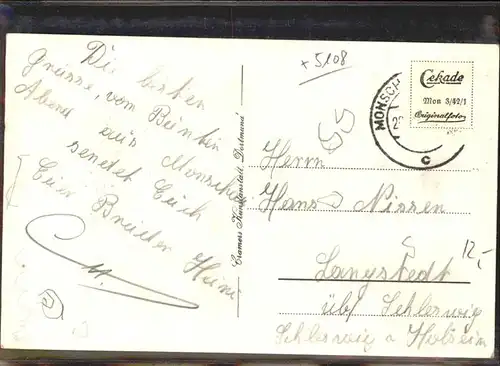 +5108
Die besten
Grüsse, vom Bunten
Abend aus Monschau
sendet Euch
Euer Bruder Heini
Cramers Kunstanstalt, Dortmund
MONSCH
c
Cekade
Mon 3/42/1
Originalfoto
55
Herrn
Hans Nissen
12,-
Langstedt
übf Schleswig
Schleswig a Holstein